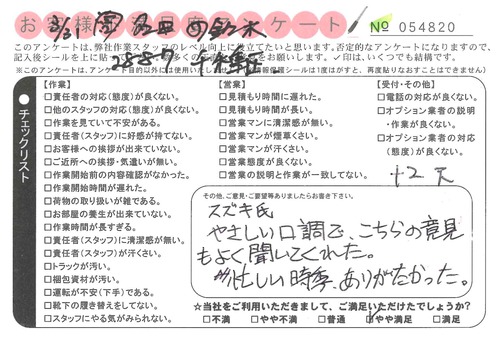 № 054820
このアンケートは、弊社作業スタッフのレベル向上に役立てたいと思います。否定的なアンケートになりますので、
記入後シールを上に貼って
をお願いします。✓印は、いくつでも結構です。
※このアンケートは、アンケート目的以外には使用いたしま
シールは1度はがすと、再度貼りなおすことはできません)
チェックリスト
【作業】
□責任者の対応(態度)が良くない。
□他のスタッフの対応(態度)が良くない。
□作業を見ていて不安がある。
□責任者(スタッフ)に好感が持てない。
□お客様への挨拶が出来ていない。
□ご近所への挨拶・気遣いが無い。
□作業開始前の内容確認がなかった。
□作業開始時間が遅れた。
□荷物の取り扱いが雑である。
□お部屋の養生が出来ていない。
□作業時間が長すぎる。
□責任者(スタッフ)に清潔感が無い。
□責任者(スタッフ)が汗くさい。
□トラックが汚い。
□梱包資材が汚い。
□運転が不安(下手)である。
□靴下の履き替えをしない。
□スタッフにやる気がみられない。
【営業】
□見積もり時間に遅れた。
□見積もり時間が長い。
□営業マンに清潔感が無い。
□営業マンが煙草くさい。
□営業マンが汗くさい。
□営業態度が良くない。
□営業の説明と作業が一致してない。
【受付・その他】
□電話の対応が良くない。
□オプション業者の説明
・作業が良くない。
□オプション業者の対応
(態度)が良くない。
その他、ご意見・ご要望等ありましたらお書き下さい。
スズキ氏
やさしい口調で、こちらの意見
もよく聞いてくれた。
忙しい時季、ありがたかった。
☆当社をご利用いただきまして、ご満足いただけたでしょうか?
□不満 □やや不満 □普通 □やや満足 □満足